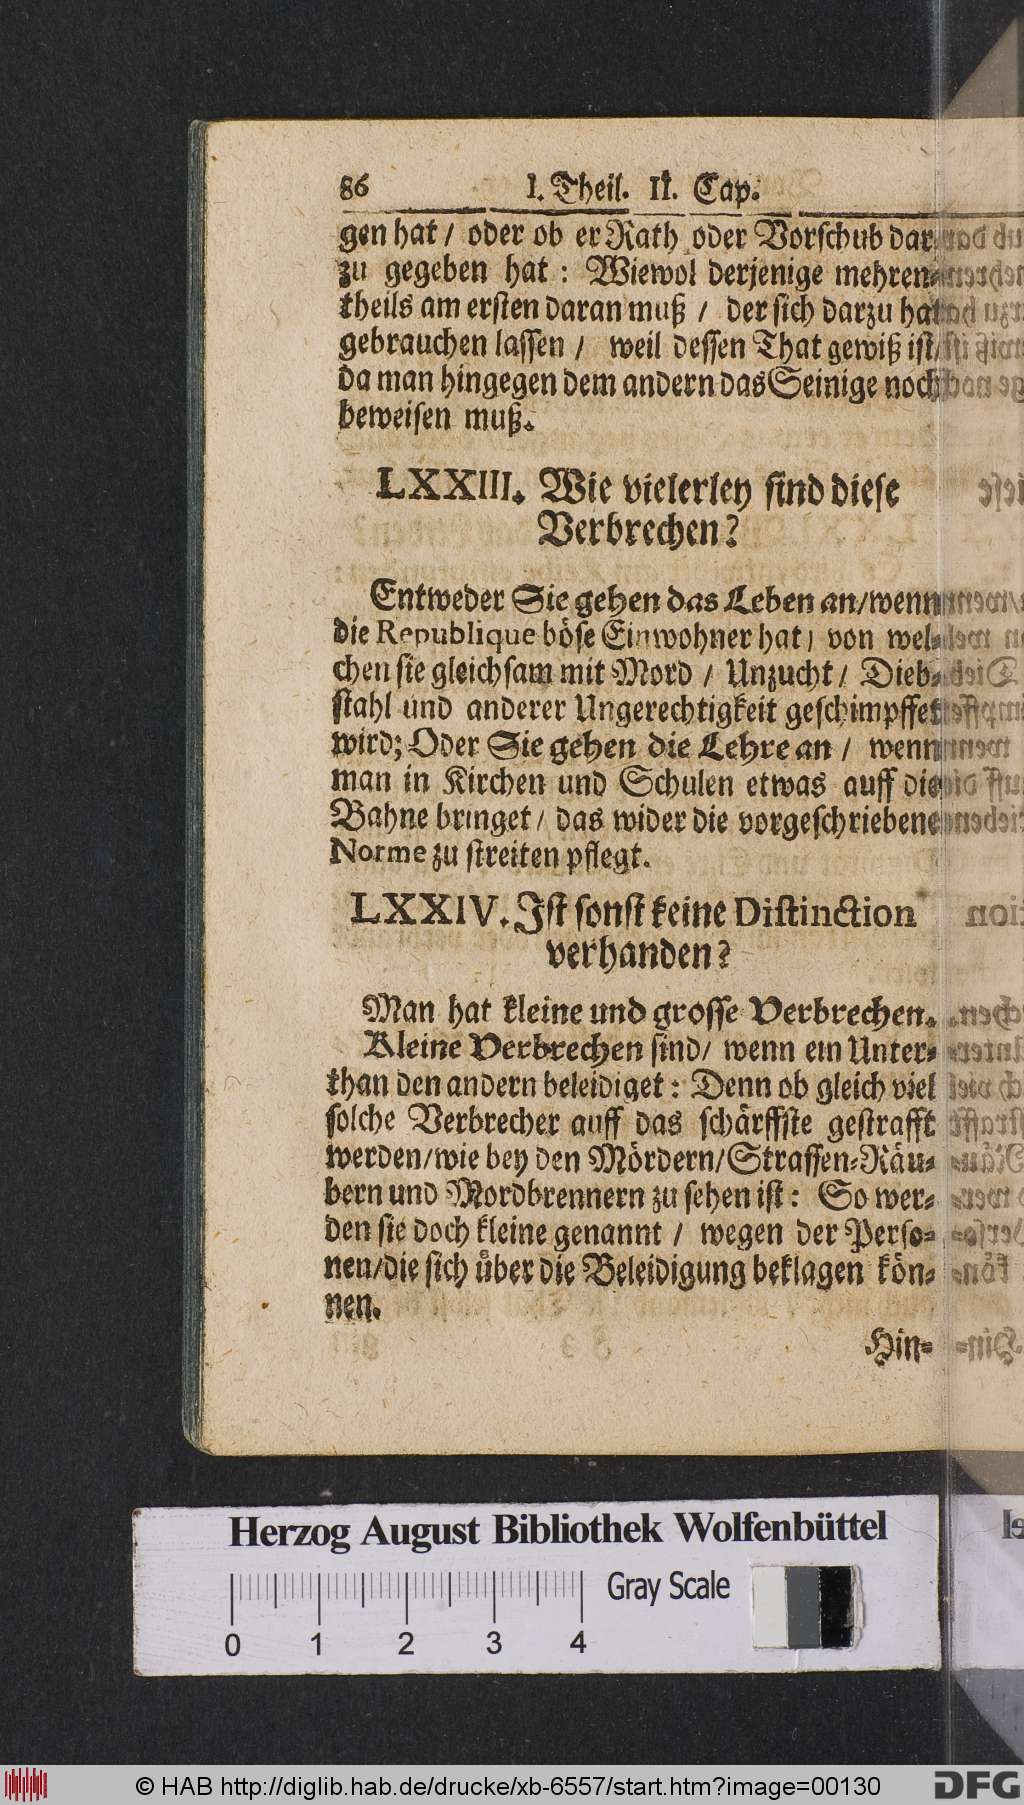 86 I. Theil. II. Cap.
gen hat / oder ob er Rath oder Vorschub dar-
zu gegeben hat : Wiewol derjenige mehren-
theils am ersten daran muß / der sich darzu hat
gebrauchen lassen / weil dessen That gewiß ist/
da man hingegen dem andern das Seinige noch
beweisen muß.
LXXIII. Wie vielerley sind diese
Verbrechen?
Entweder Sie gehen das Leben an/wenn
die Republique böse Einwohner hat/ von wel-
chen sie gleichsam mit Mord / Unzucht / Dieb-
stahl und anderer Ungerechtigkeit geschimpffet
wird; Oder Sie gehen die Lehre an / wenn
man in Kirchen und Schulen etwas auff die
Bahne bringet / das wider die vorgeschriebene
Norme zu streiten pflegt.
LXXIV. Ist sonst keine Distinction
verhanden?
Man hat kleine und grosse Verbrechen.
Kleine Verbrechen sind/ wenn ein Unter-
than den andern beleidiget : Denn ob gleich viel
solche Verbrecher auff das schärffste gestrafft
werden/wie bey den Mördern/Strassen-Räu-
bern und Mordbrennern zu sehen ist : So wer-
den sie doch kleine genannt / wegen der Perso-
nen/die sich über die Beleidigung beklagen kön-
nen.
Hin-
Herzog August Bibliothek Wolfenbüttel
Gray Scale
0 1 2 3 4
© HAB http://diglib.hab.de/drucke/xb-6557/start.htm?image=00130
DFG